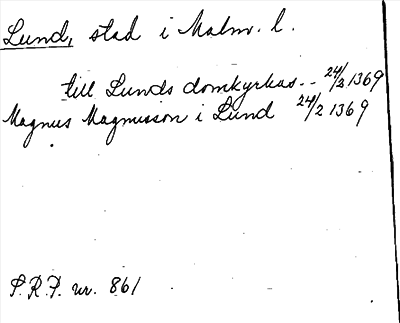 Lund, stad i Malm. l.
till Lunds domkyrkas.. 24/2 1369
Magnus Magnusson i Lund 24/2 1369
S.R.P. nr. 861